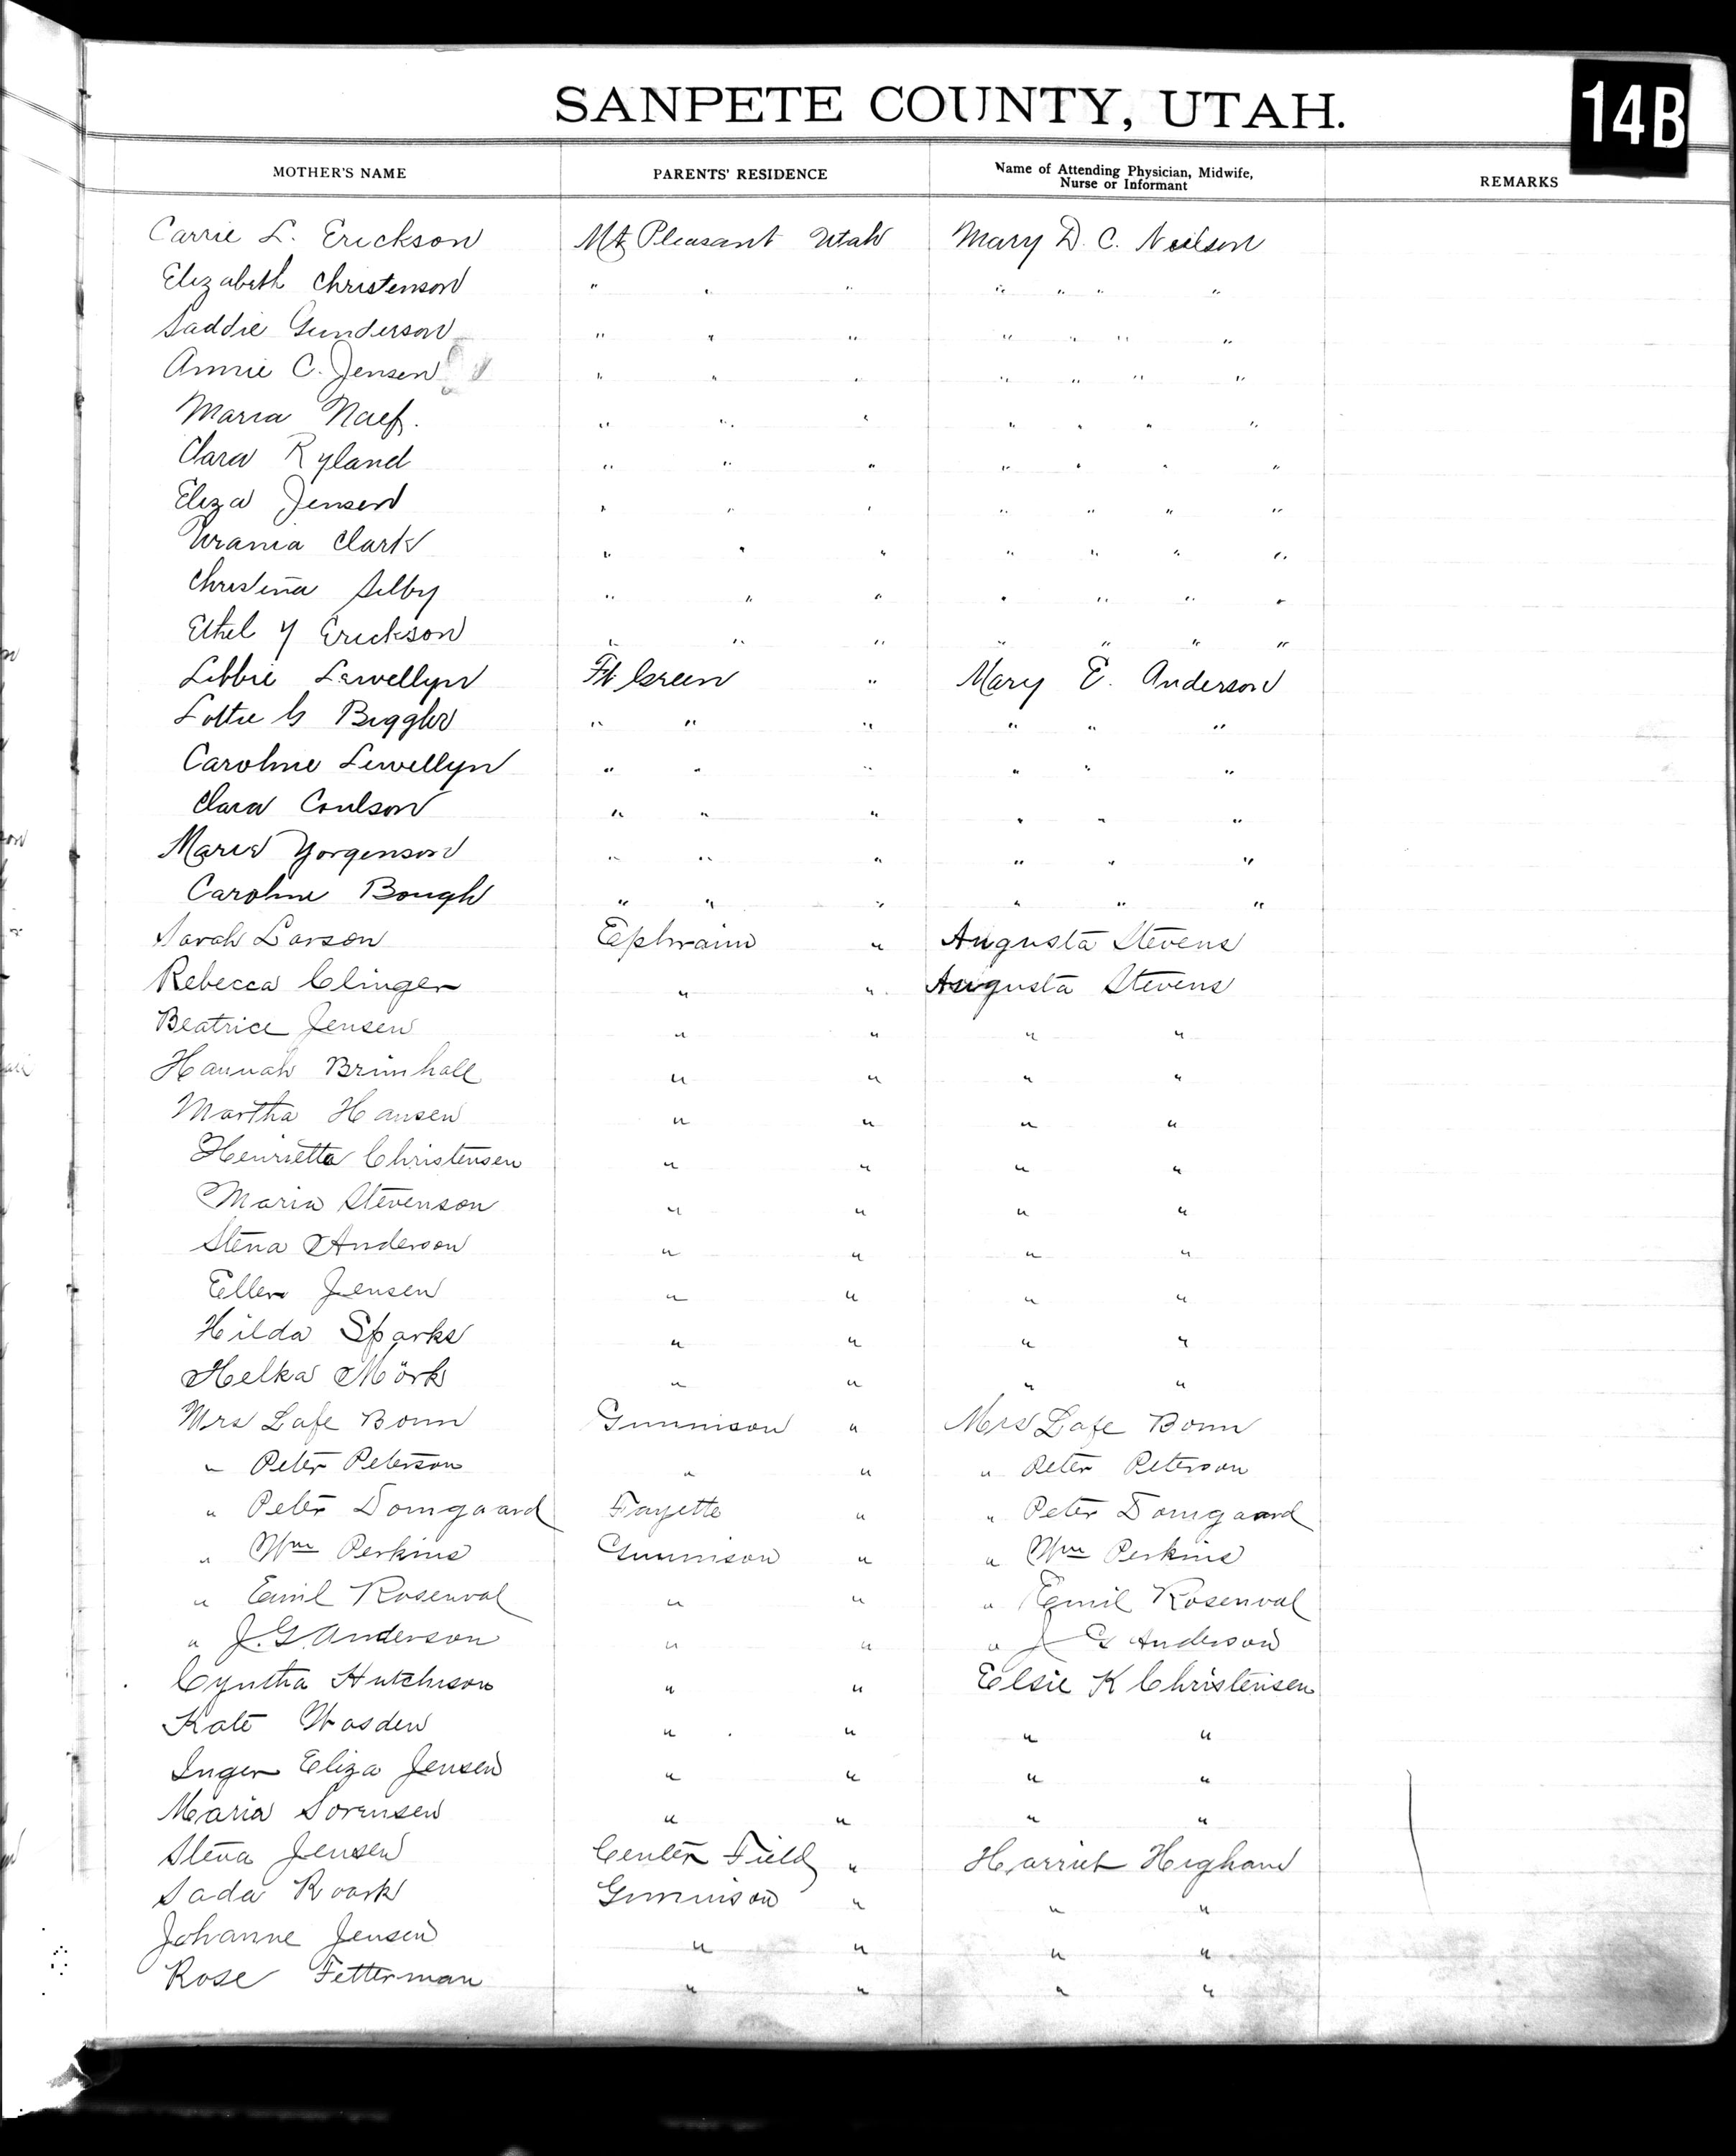 SANPETE COUNTY, UTAH.
14B
MOTHER'S NAME PARENTS' RESIDENCE Name of Attending Physician, Midwife, Nurse or Informant REMARKS
Carrie L. Erickson Mt Pleasant Utah Mary D. C. Neilson
Elizabeth Christenson " " " " " " "
Saddie Gunderson " " " " " " "
Annie C. Jensen " " " " " " "
Maria Naef. " " " " " " "
Clara Ryland " " " " " " "
Eliza Jensen " " " " " " "
Urania Clark " " " " " " "
Christina Selby " " " " " " "
Ethel Y Erickson " " " " " " "
Libbie Lewellyn Ft Green " Mary E. Anderson
Lottie G Biggler " " " " " "
Caroline Lewellyn " " " " " "
Clara Coulson " " " " " "
Marie Yorgenson " " " " " "
Caroline Bough " " " " " "
Sarah Larson Ephraim " Augusta Stevens
Rebecca Clinger " " Augusta Stevens
Beatrice Jensen " " " "
Hannah Brimhall " " " "
Martha Hansen " " " "
Henrietta Christensen " " " "
Maria Stevenson " " " "
Stena Anderson " " " "
Ellen Jensen " " " "
Hilda Sparks " " " "
Helka Mörk " " " "
Mrs Lafe Bown Gunnison " Mrs Lafe Bown
" Peter Peterson " " " Peter Peterson
" Peter Domgaard Fayette " " Peter Domgaard
" Wm Perkins Gunnison " " Wm Perkins
" Emil Rosenval " " " Emil Rosenval
" J. G. Anderson " " " J G Anderson
Cyntha Hutchison " " Elsie K Christensen
Kate Wasden " " " "
Inger Eliza Jensen " " " "
Maria Sorensen " " " "
Stena Jensen Center Field " Harriet Higham
Sada Roark Gunnison " " "
Johanne Jensen " " " "
Rose Fetterman " " " "